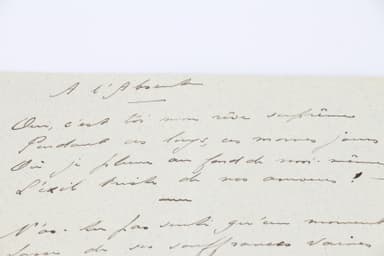 A l'Absente
Oui, c'est toi mon rêve suprême
Pendant ces longs, ces mornes jours
Où je pleure au fond de moi-même
L'exil triste de nos amours !
N'as-tu pas senti qu'un moment
de ces souffrances vaines